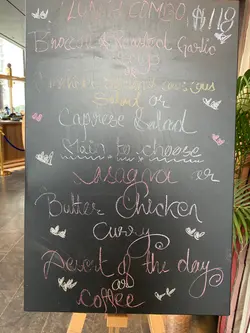 LUNCH COMBO
$119
Broccoli & roasted Garlic
Soup
couscous
Salad or
Caprese Salad
Main to choose
Lasagna or
Butter Chicken
Curry
Desert of the day
or
Coffee